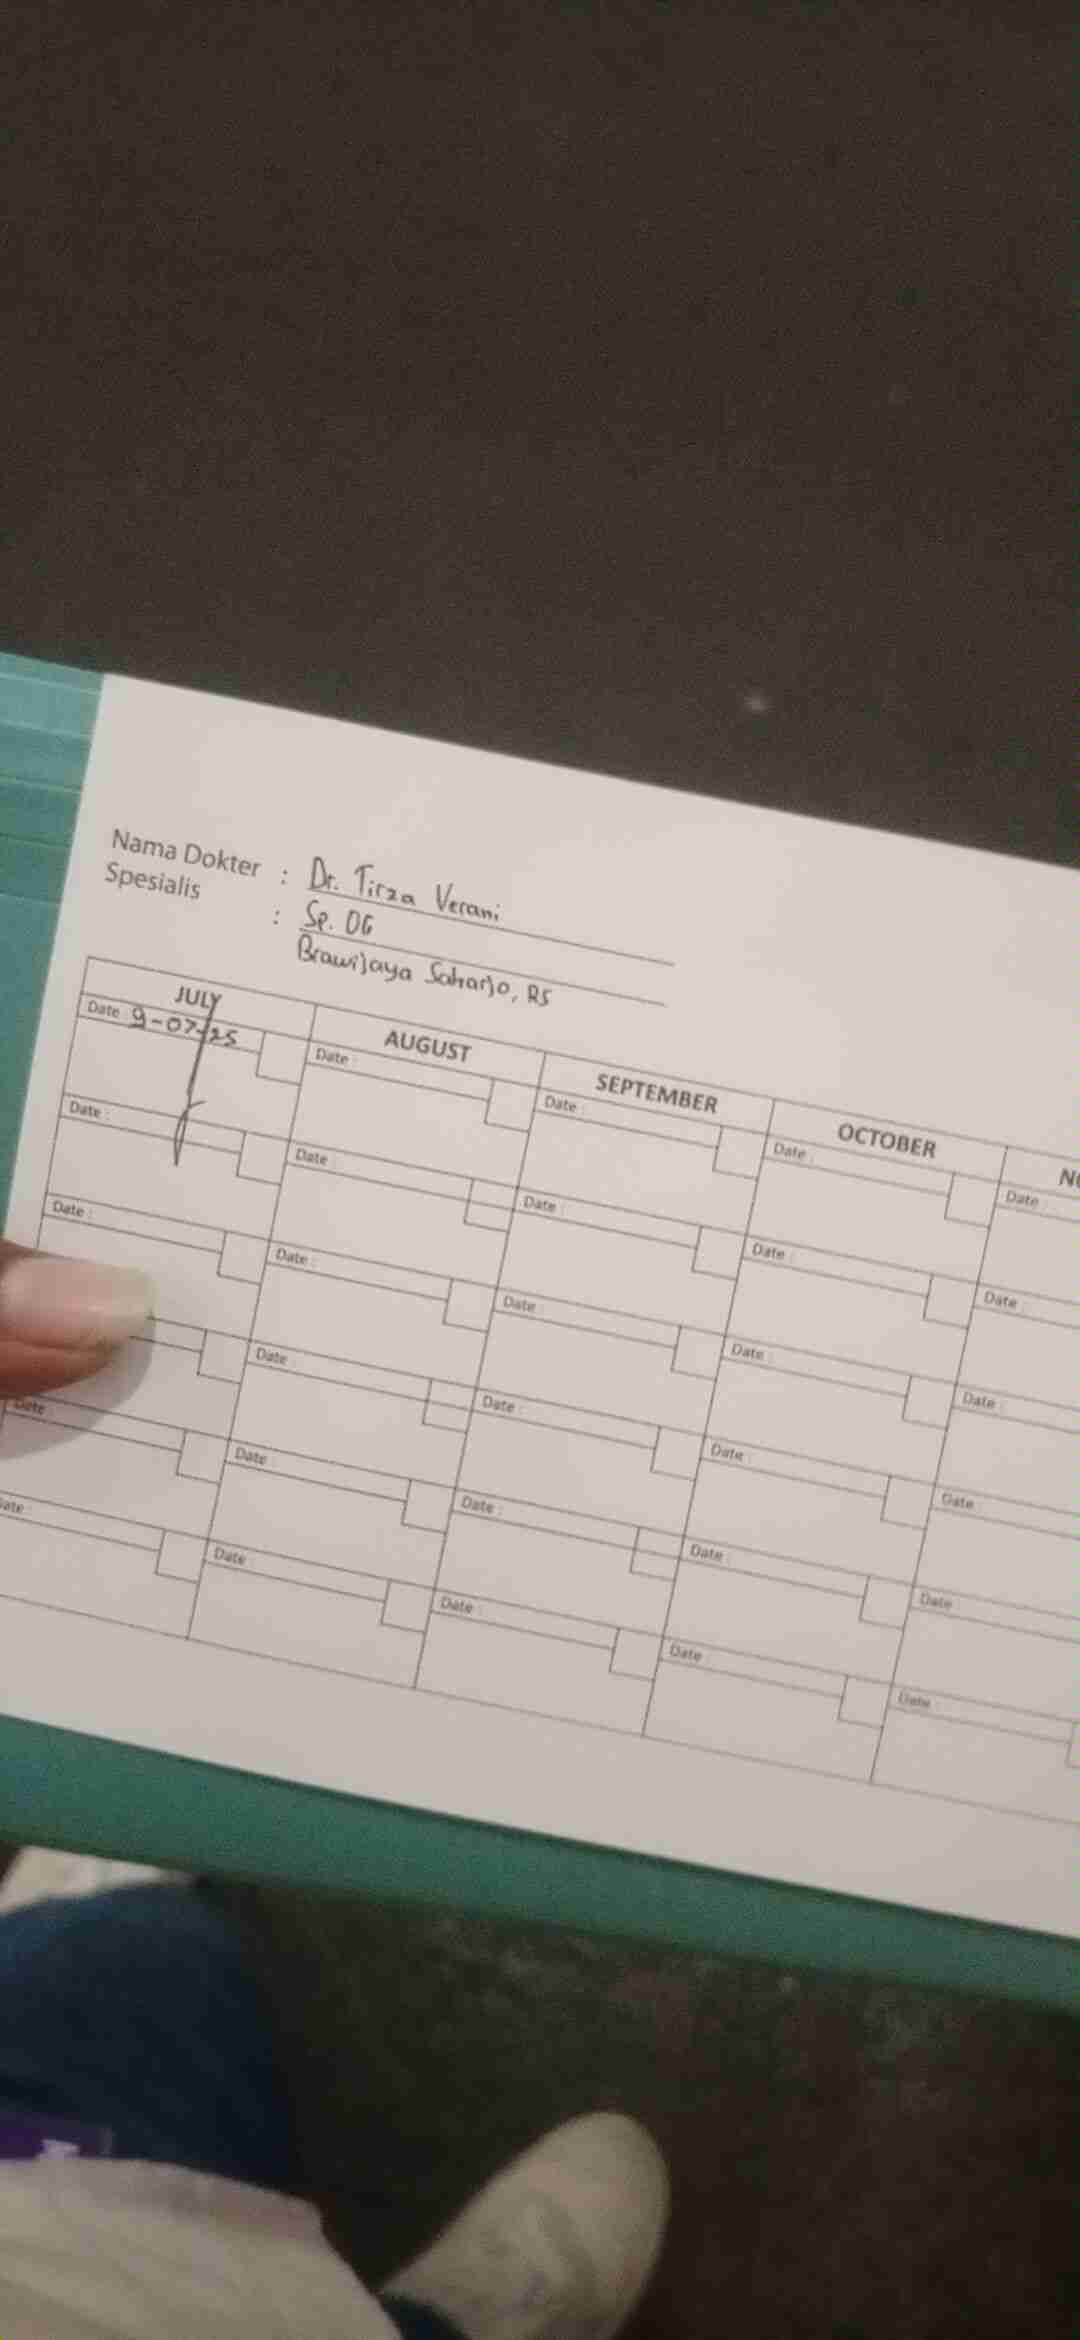 Nama Dokter : Dr. Tirza Verani
Spesialis : Sp. OG
Brawijaya Saharjo, RS
JULY AUGUST SEPTEMBER OCTOBER
Date 9-07-25 Date : Date : Date : Date :
Date : Date : Date : Date : Date :
Date : Date : Date : Date : Date :
Date : Date : Date : Date
Date Date : Date : Date : Date
Date : Date : Date : Date :